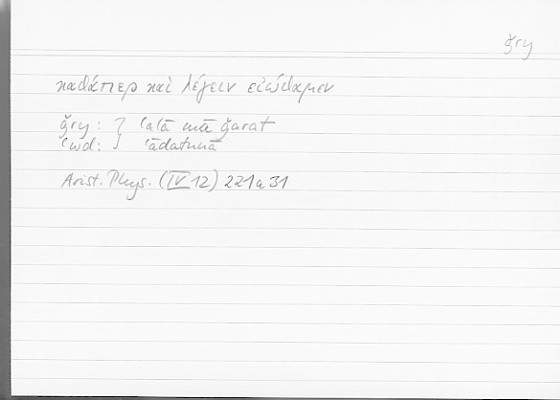 ǧry
καθάπερ καὶ λέγειν εἰώθαμεν
ǧry: } ʿalā mā ǧarat
ʿwd: } ʿādatunā
Arist. Phys. (IV 12) 221a31